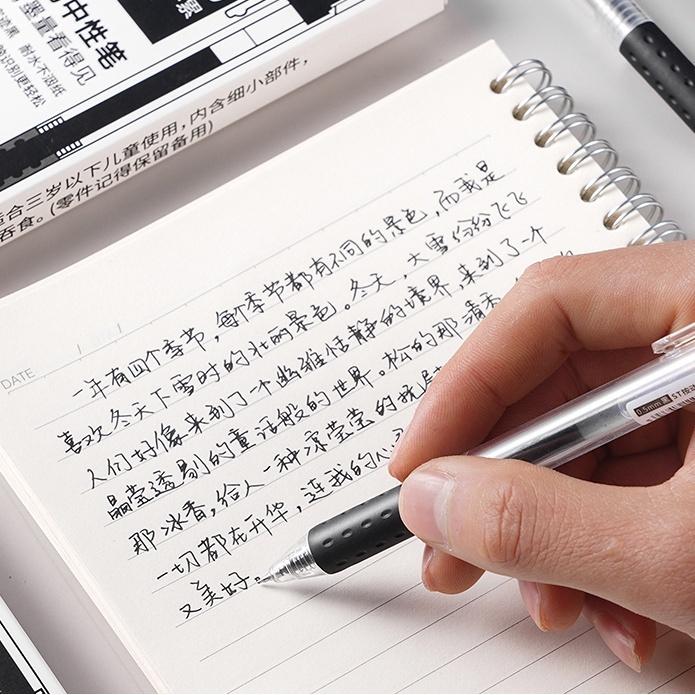 中性笔
墨量看得见
耐水不洇纸
适合三岁以下儿童使用，内含细小部件，
吞食。(零件记得保留备用)
DATE
一年有四个季节，每个季节都有不同的景色，而我是
喜欢冬天下雪时的壮丽景色。冬天，大雪纷纷飞飞
人们好像来到了个幽雅恬静的境界，来到了一个
晶莹透剔的童话般的世界。松的那清香，
那冰香，给人一种凉莹莹的抚慰
一切都在升华，连我的心
又美好。
0.5mm 黑